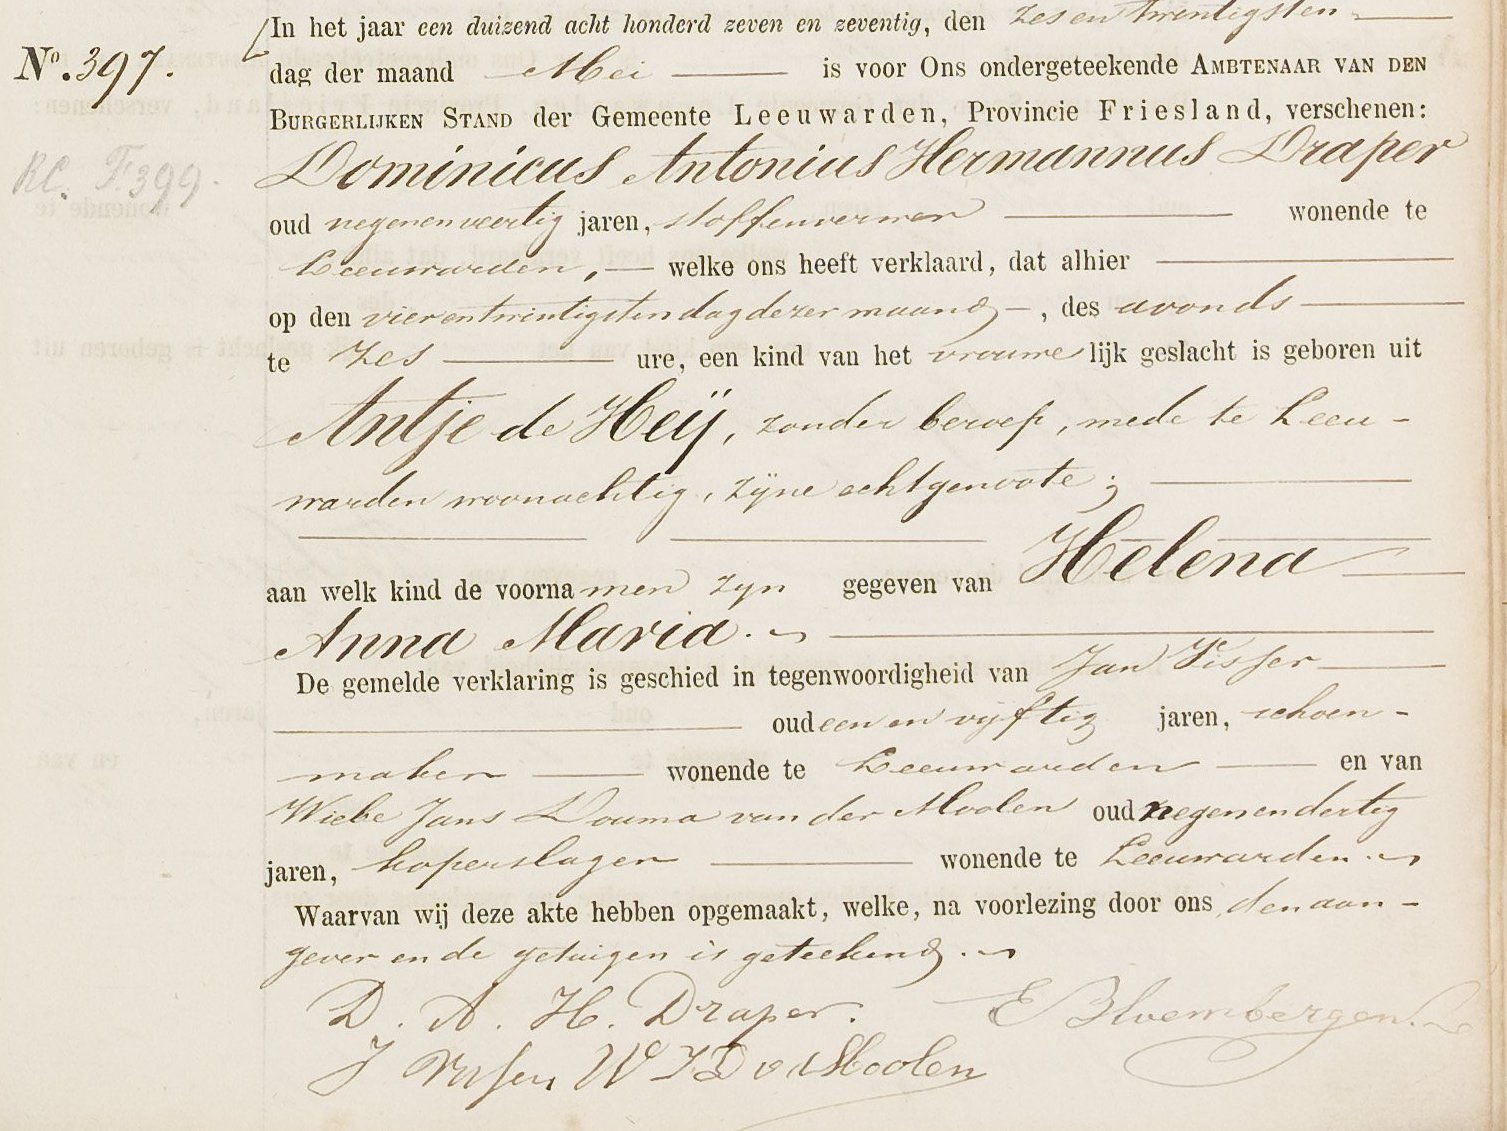 In het jaar een duizend acht honderd zeven en zeventig, den zesentwintigsten
No. 397.
dag der maand Mei is voor Ons ondergeteekende AMBTENAAR VAN DEN
BURGERLIJKEN STAND der Gemeente Leeuwarden, Provincie Friesland, verschenen:
Dominicus Antonius Hermannus Draper
R.C. F.399.
oud negenenveertig jaren, stoffenverwer wonende te
Leeuwarden, welke ons heeft verklaard, dat alhier
op den vierentwintigsten dag dezer maand, des avonds
te zes ure, een kind van het vrouwelijk geslacht is geboren uit
Antje de Heij, zonder beroep, mede te Leeu-
warden woonachtig, zijne echtgenoote;
aan welk kind de voornamen zijn gegeven van Helena
Anna Maria.
De gemelde verklaring is geschied in tegenwoordigheid van Jan Visser
oud een en vijftig jaren, schoen-
maker wonende te Leeuwarden en van
Wiebe Jans Douma van der Moolen oud negenendertig
jaren, koperslager wonende te Leeuwarden.
Waarvan wij deze akte hebben opgemaakt, welke, na voorlezing door ons, den aan-
gever en de getuigen is geteekend.
D. A. H. Draper. E Bloembergen
J Visser W J D v d Moolen